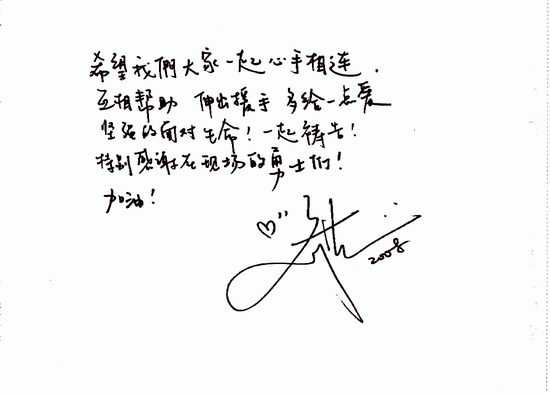 希望我們大家一起心手相连．
互相帮助 伸出援手 多给一点爱
坚强的面对生命！一起祷告！
特别感谢在现场的勇士们！
加油！
2008